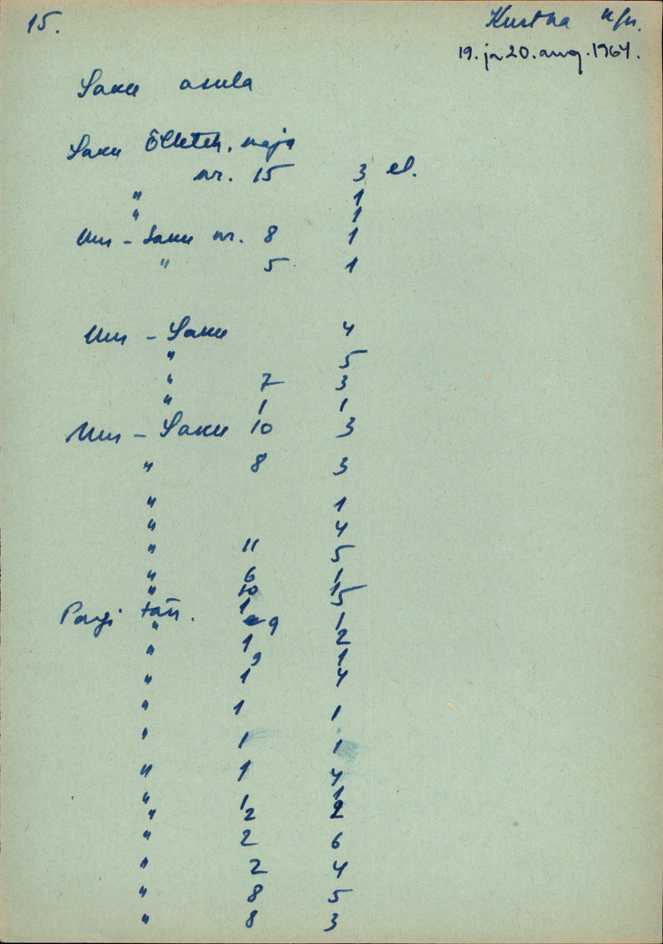 15.
Kurtna k/n.
19. ja 20. aug. 1964.
Saku asula
Saku Õlleteh. maja
nr. 15 3 el.
" 1
" 1
Uus - Saku nr. 8 1
" 5 1
Uus - Saku 4
" 5
" 7 3
" 1 1
Uus - Saku 10 3
" 8 3
" 1
" 4
" 11 5
" 6 1
" 10 15
Pargi tän. 1 1
" 9 2
" 1 1
" 1 4
" 1 1
" 1 1
" 1 4
" 1
" 12 2
" 2 6
" 2 4
" 8 5
" 8 3